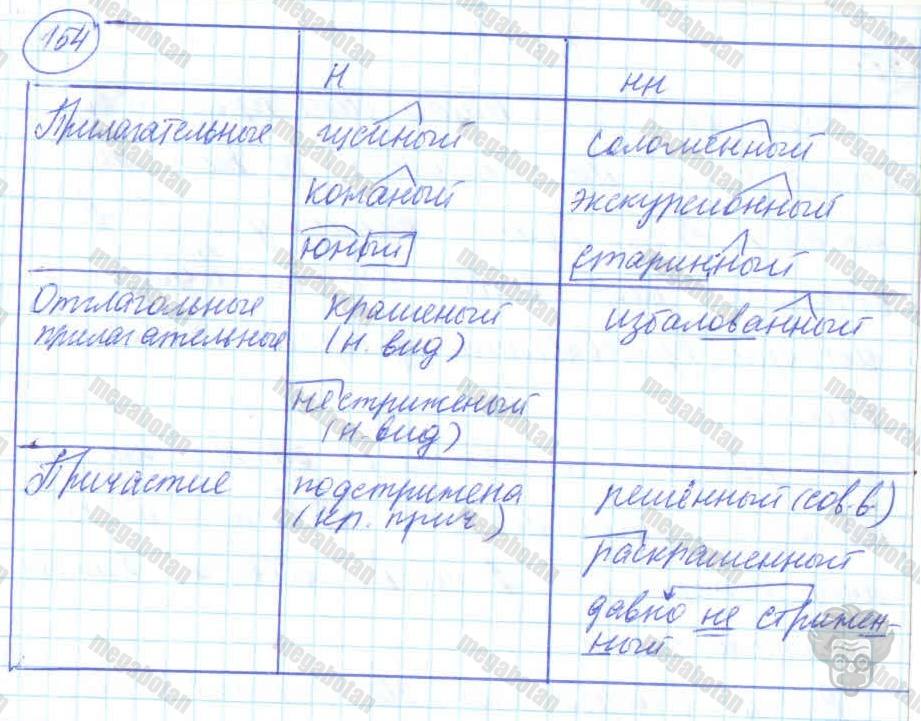 154
Н
НН
Прилагательные
кожаный
юный
соломенный
экскурсионный
старинный
Отглагольные
прилагательные
крашеный
(н. вид)
нестриженый
(н. вид)
избалованный
Причастие
подстрижена
(кр. прич)
решённый (сов.в.)
раскрашенный
давно не стрижен-
ный
megabotan